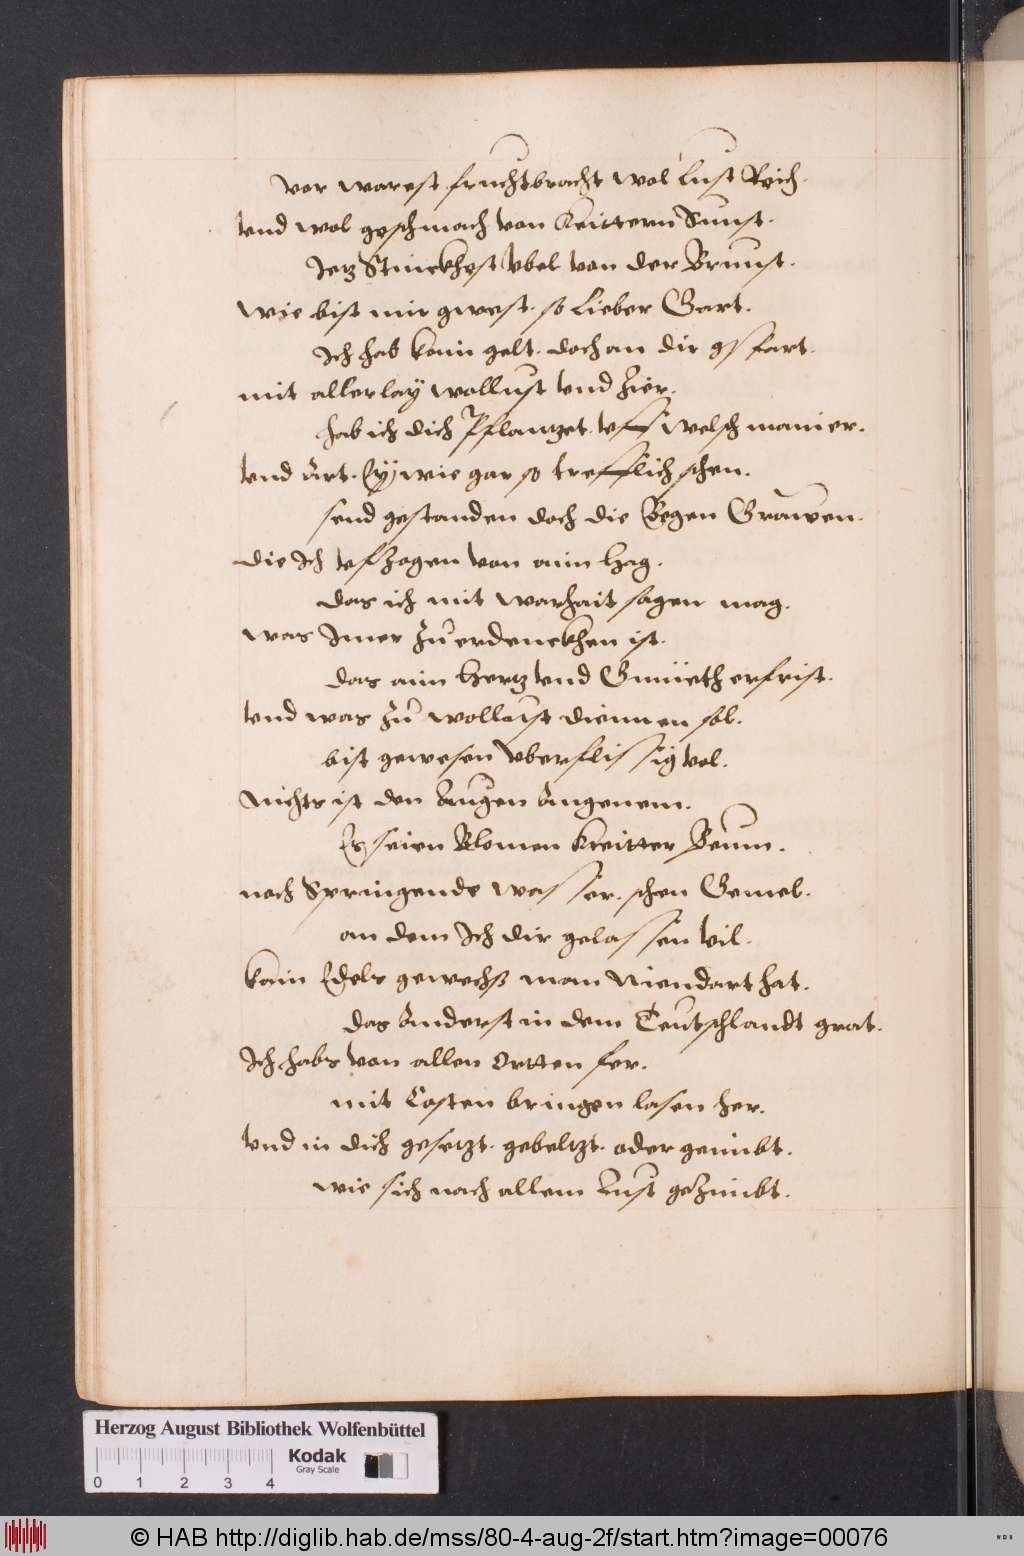 Vor warest fruchtbracht wol Lust Reich.
Vnd wol geschmach von Kreittern Sunst.
Jetz Stinckhest Vbel von der Brunst.
Wie bist mir gwest. so lieber Gart.
Ich hab kain gelt. doch an dir gsfart.
mit allerlay wollust Vnd Zier.
hab ich dich Pflanzet. Vff welsch manier.
Vnd Art. Ey wie gar so trefflich schen.
send gestanden doch die Begen Grawen.
die Ich Vfzogen von aim Hag.
das ich mit warhait sagen mag.
was Imer Zu erdenckhen ist.
das aim Hertz Vnd Gmüeth erfrist.
Vnd was Zu wollust diennen sol.
bist gewesen Vberflissig Vol.
Nichts ist den Augen Angenem.
Es seien Blomen Kreitter Beum.
noch Springende wasser. schen Gemel.
an dem Ich dir gelassen Vil.
kain Edels gewechß man Niendart hat.
das Anderst in dem Teutschlandt grat.
Ich habs von allen Ortten fer.
mit Costen bringen lasen her.
Vnd in dich gesetzt. gebeltzt. oder geimbt.
wie sich nach allem Lust geZimbt.
Herzog August Bibliothek Wolfenbüttel
Kodak
Gray Scale
0 1 2 3 4
© HAB http://diglib.hab.de/mss/80-4-aug-2f/start.htm?image=00076